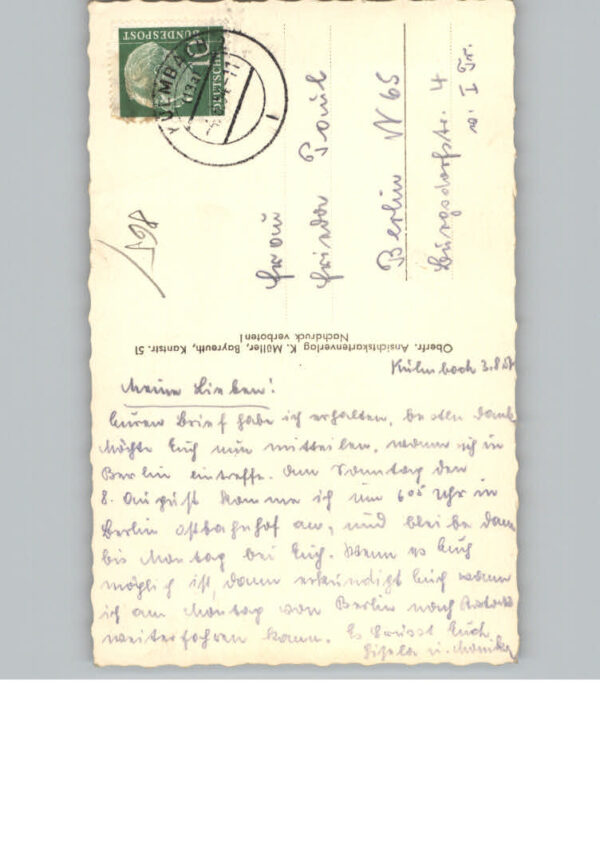 DEUTSCHE
BUNDESPOST
10
KULMBACH
(13a)
198
Frau
Frieda Paul
Berlin N 65
Burgsdorfstr. 4
I Tr.
Oberfr. Ansichtskartenverlag K. Müller, Bayreuth, Kantstr. 51
Nachdruck verboten!
Kulmbach 3.8.
Meine Lieben!
Euren Brief habe ich erhalten, besten Dank
Möchte Euch nun mitteilen, wann ich in
Berlin eintreffe. Am Sonntag den
8. August komme ich um 6 05 Uhr in
Berlin Ostbahnhof an, und bleibe dann
bis Montag bei Euch. Wenn es Euch
möglich ist, dann erkündigt Euch wann
ich am Montag von Berlin nach
weiterfahren kann. Es Grüsst Euch
Gisela u. Monika